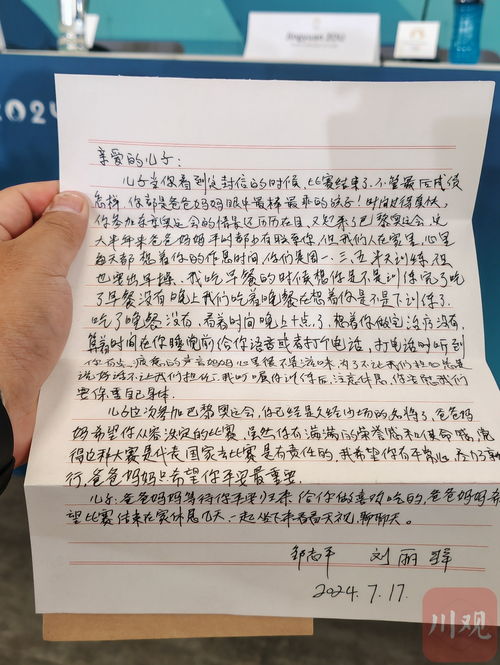 Jingyuan ZOU
2024
亲爱的儿子：
儿子当你看到这封信的时候，比赛结束了，不管最后成绩
怎样，你都是爸爸妈妈眼中最棒最乖的孩子！时间过得真快，
你参加东京奥运会的情景还历历在目，又起来了巴黎奥运会，这
大半年来爸爸妈妈平时都没有联系你，但我们人在家里，心里
每天都想着你的作息时间，你们是周一、三、五半天训练，但
也要出早操，我吃早餐的时候想你是不是训练完了吃
了早餐没有，晚上我们吃着晚餐在想着你是不是下训练了，
吃了晚餐没有，看着时间晚上十点了，想着你做完治疗没有，
算着时间在你睡觉前给你语音或者打个电话，打电话时听到
你有点疲惫的声音妈妈心里很不是滋味，为了不让我们担心总是
说好话不让我们担心，我叮嘱你训练后注意休息，你
要保重自己身体。
儿子这次参加巴黎奥运会，你已经是久经沙场的名将了，爸爸妈
妈希望你从容淡定的比赛，虽然你有满满的荣誉感和使命感，觉
得这种大赛是代表国家去比赛是有责任的，我希望你有平常心，尽力了就
行，爸爸妈妈只希望你平安最重要。
儿子：爸爸妈妈等待你平安归来给你做喜欢吃的，爸爸妈妈希
望比赛结束在家休息几天，一起坐下来看看电视，聊聊天。
邹志平 刘丽辉
2024.7.17.
川观